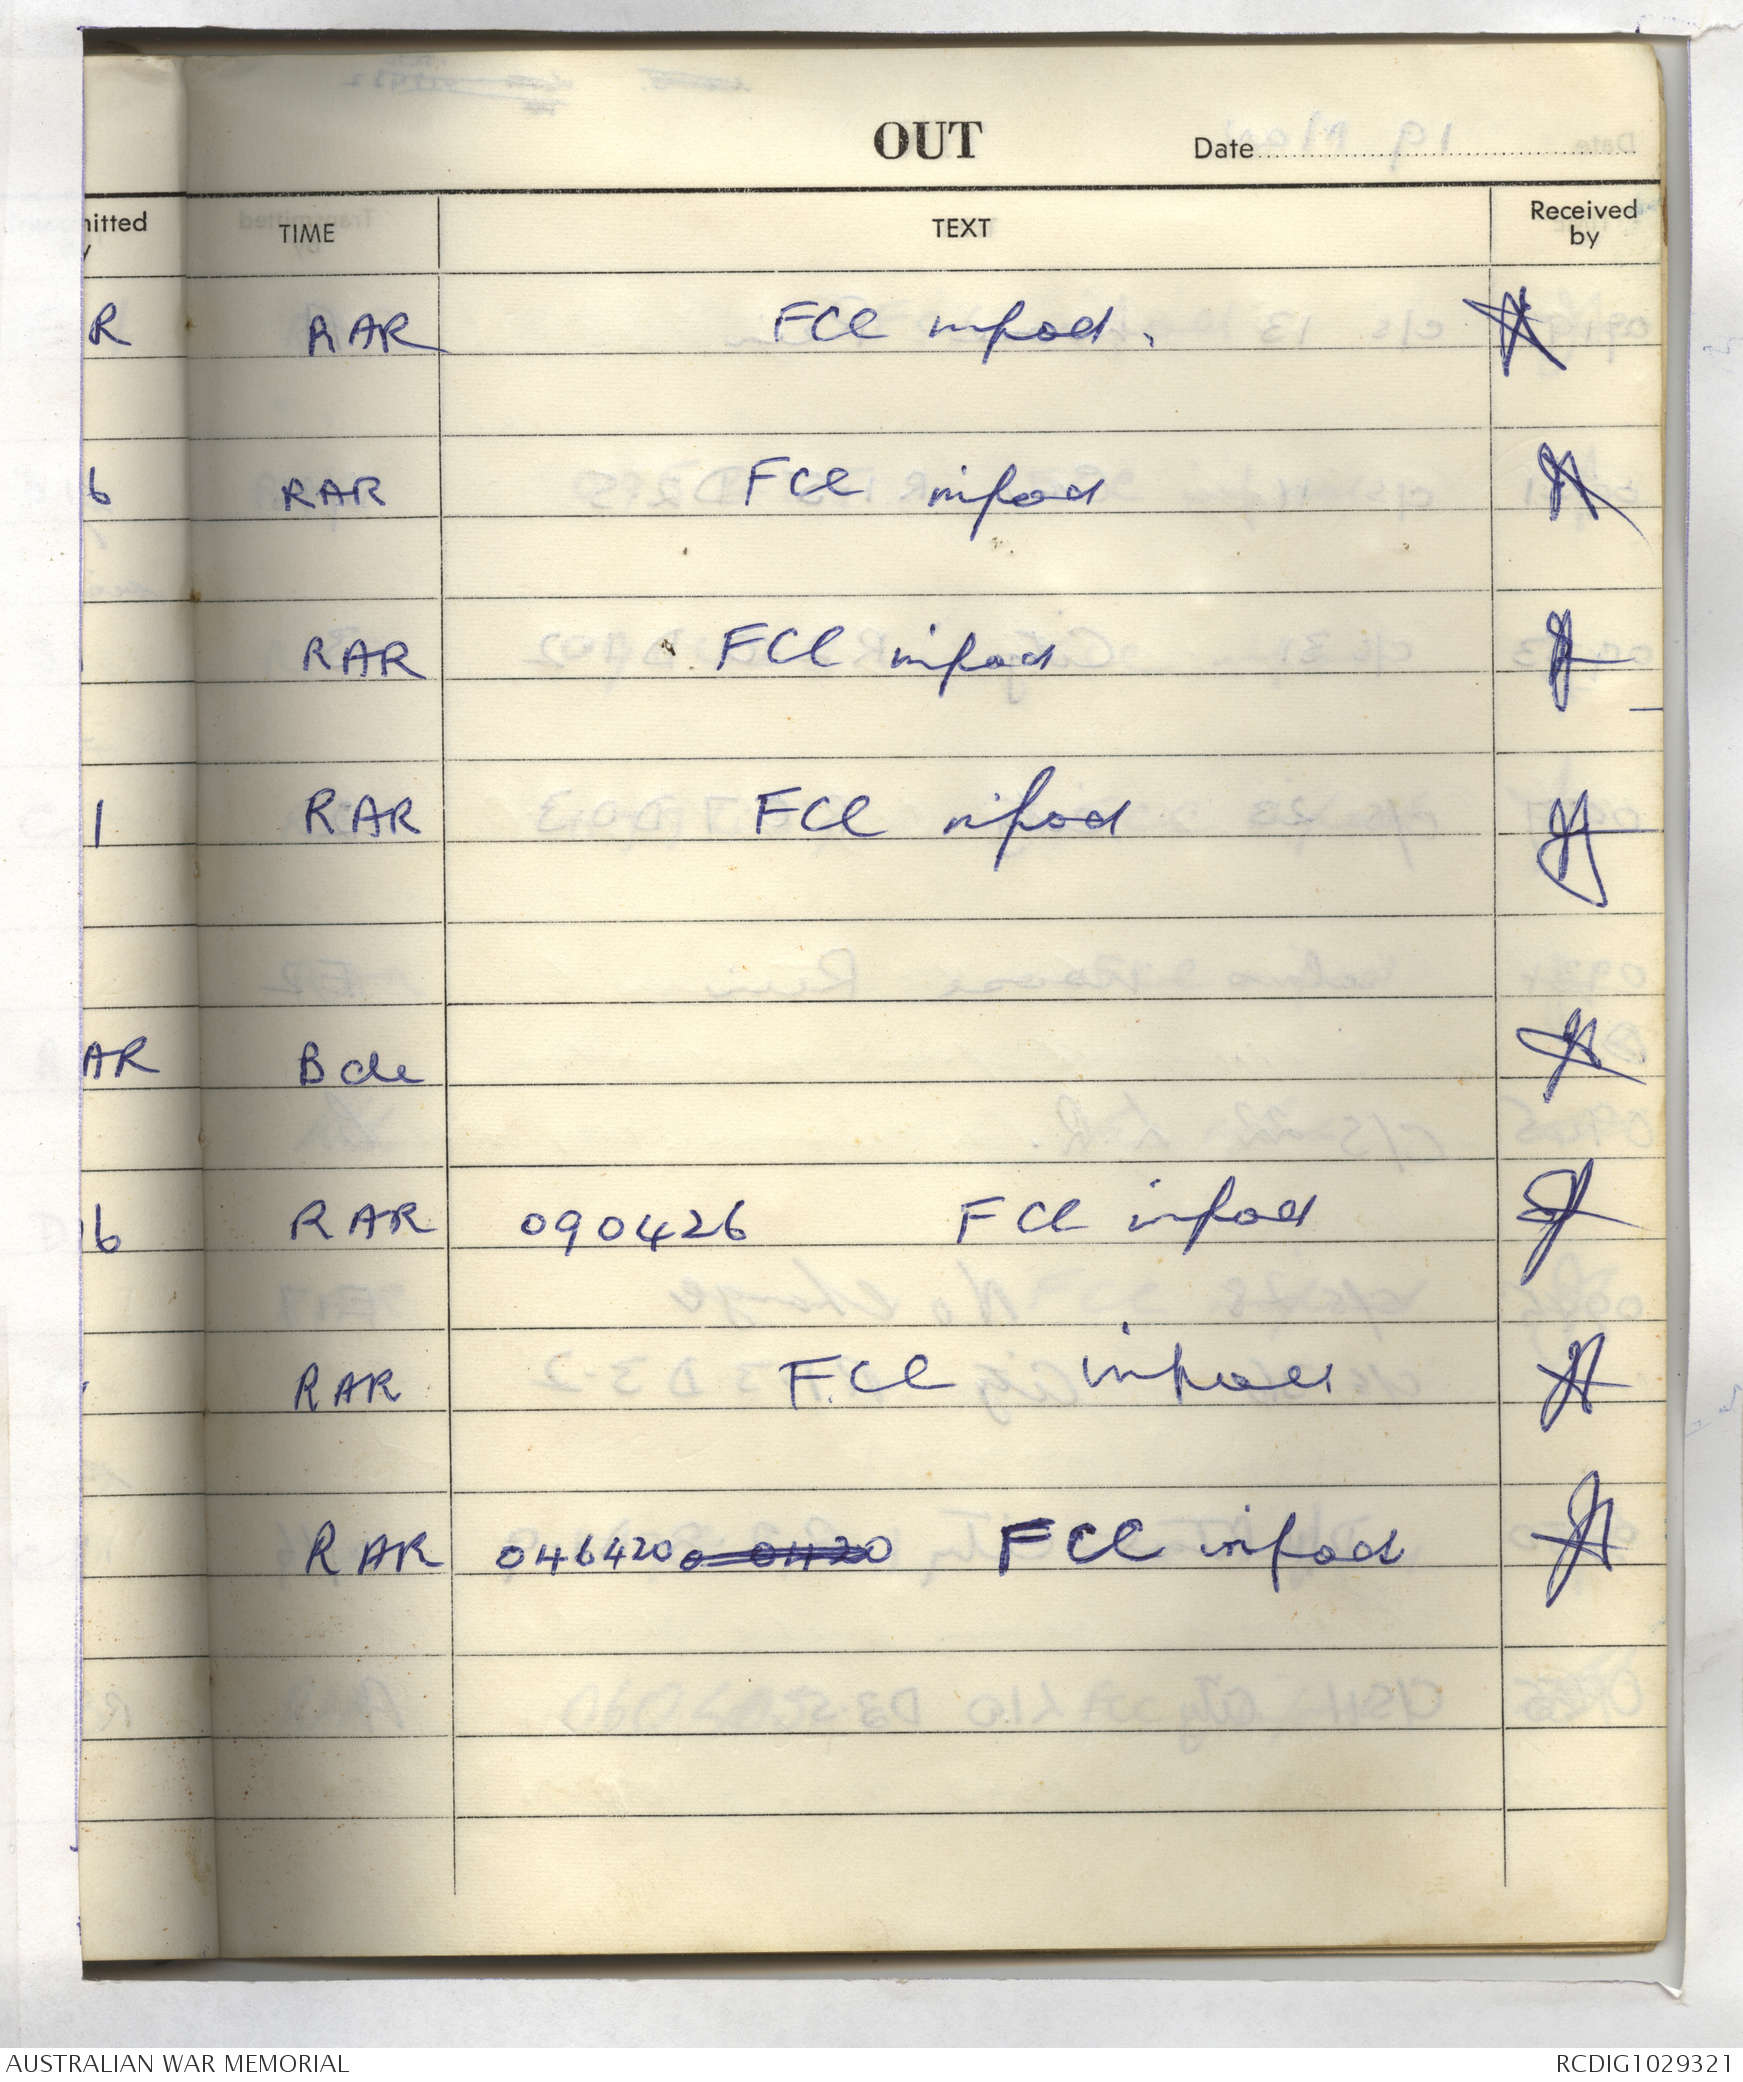 OUT
Date
mitted
y
TIME
TEXT
Received
by
R
RAR
FCE infod.
6
RAR
FCE infod
RAR
FCE infod
1
RAR
FCE infod
AR
Bde
16
RAR
090426
FCE infod
RAR
FCE infod
RAR
046420
FCE infod
AUSTRALIAN WAR MEMORIAL
RCDIG1029321